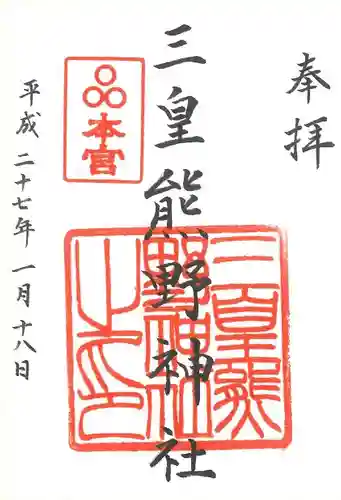 奉拝
三皇熊野神社
本宮
三皇熊野神社之印
平成二十七年一月十八日